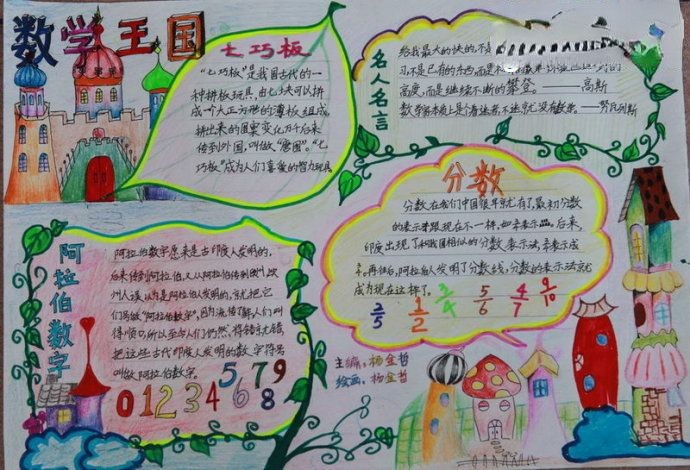 数学王国
七巧板
"七巧板"是我国古代的一
种拼板玩具,由七块可以拼
成一个大正方形的薄板组成,
拼出来的图案变化万千后来
传到外国,叫做"唐图",“七
巧板"成为人们喜爱的智力玩具
名人名言
给我最大的快的,不是
高度,而是继续不断的攀登。——高斯
分数
分数在我们中国很早就有了,最初分数
的表示跟现在不一样,后来,
印度出现了和我国相似的分数表示法,
再往后,阿拉伯人发明了分数线,分数的表示法就
成为现在这样了。
3/5 1/2 3/4 5/6 4/7 9/10
阿拉伯数字
阿拉伯数字原来是古印度人发明的,
后来传到阿拉伯,又从阿拉伯传到欧州,欧
州人误以为是阿拉伯人发明的,就把它
们叫做"阿拉伯数字",因为流传了,人们叫
得顺口,所以至今人们仍然将错就错,
把这些古代印度人发明的数字符号
叫做阿拉伯数字。
0 1 2 3 4 5 6 7 8 9
主编:杨金哲
绘画:杨金哲